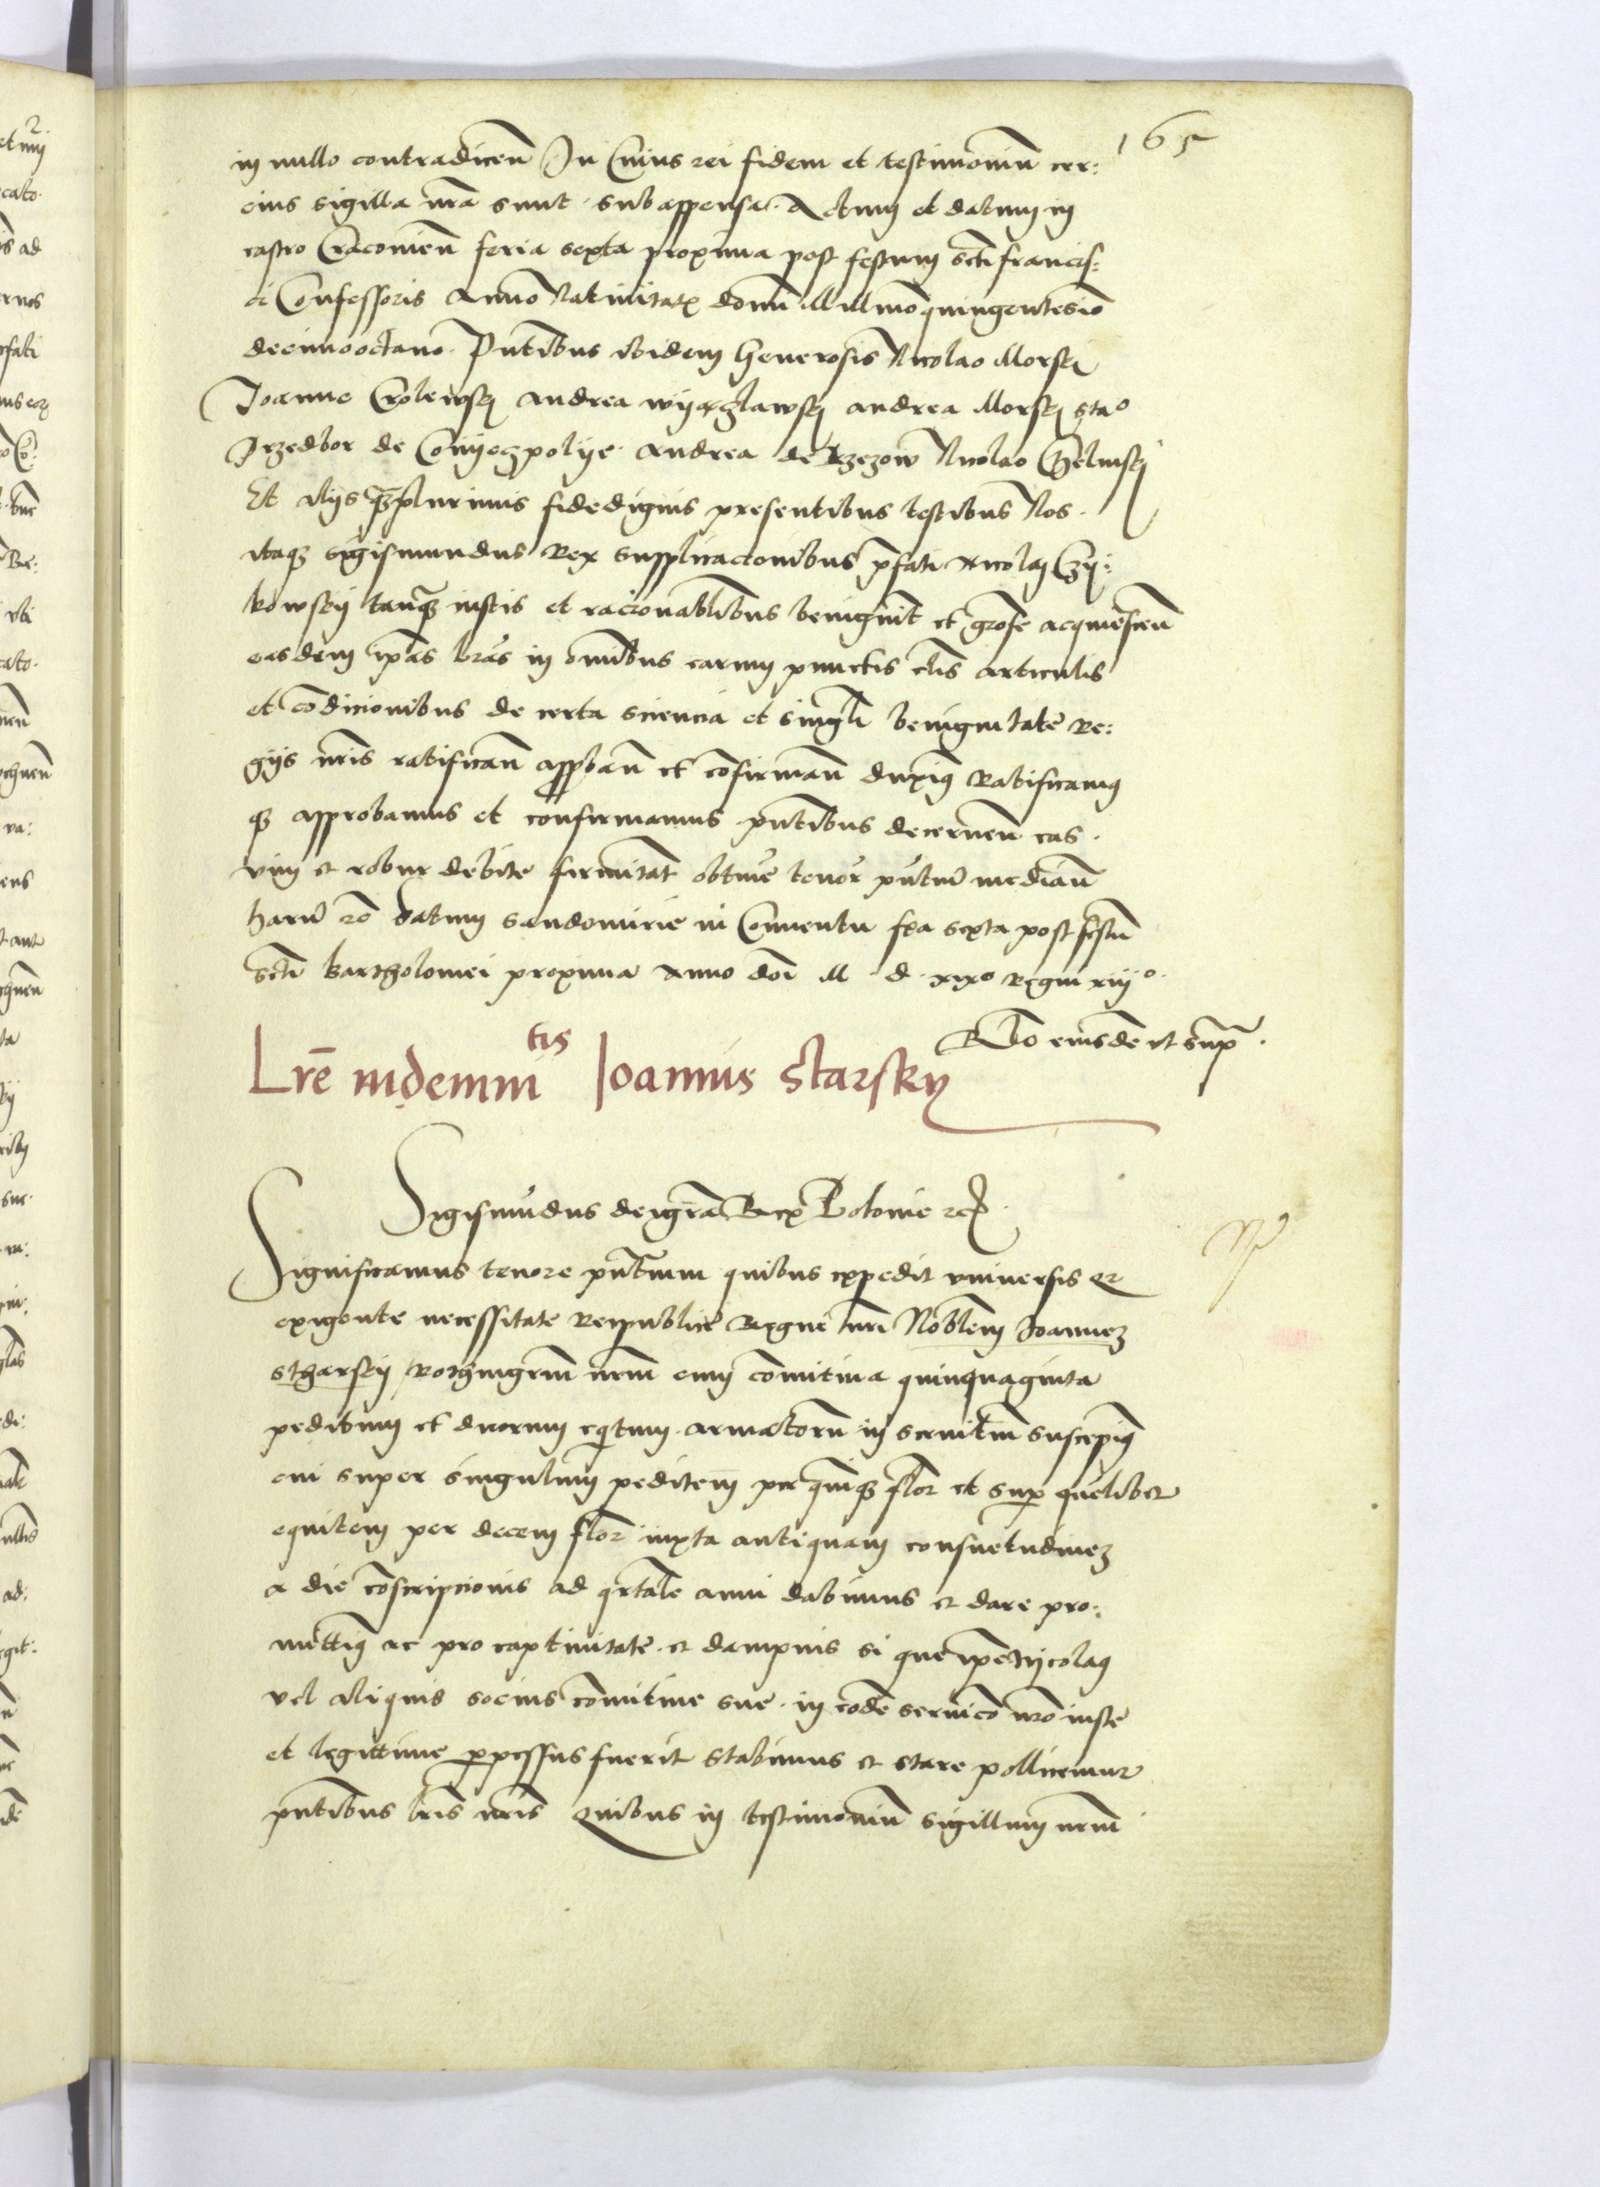 165
in nullo contradicen̄ In Cuius rei fidem et testimoniū cer:
cius sigilla nr̄a sunt subappensa. Actum et datum in
castro Cracovien̄ feria sexta proxima post festum scti francis:
ci Confessoris Anno Nativitatꝭ domī Millmo quingentesīo
decimooctavo. Pn̄tibus ibidem Generosis Nicolao Morsky
Joanne Crolewsky Andrea Andrea Morsky
de Conyeczpolye. Andrea de Rzezow Nicolao
Et Alijs ꝙplurimis fidedignis presentibus testibus Nos.
itaqꝫ Sigismundus Rex supplicacionibus p̄fati Nicolaj Czy:
kowsky tanqꝫ iustis et racionablibus benignit̄ et gr̄ose acquiescen̄
easdem ip̄as lr̄as in om̄ibus earum punctis cl̄is articulis
et cōdicionibus de certa sciencia et singlī benignitate Re:
gijs nr̄is ratifican̄ app̄ban̄ et cōfirman̄ duximꝰ Ratificamꝰ
qꝫ approbamus et confirmamus pn̄tibus decernen̄ eas.
vim et robur debite firmitat̄ obtine tenor̄ pn̄tiū median̄
harū Datum Sandomirie in Conventu fr̄a sexta post festū
scti Bartholomei proxima Anno dōi M. d. xixo Regni xiijo.
Rēlo eiusdē ut sup̄.
Lrē indemnitis Joannis Starsky
Sigismūdus dei gr̄a Rex Polonie ꝛcꝭ.
Significamus tenore pn̄tium quibus expedit universis Qꝛ
exigente necessitate Reipublice Regni nr̄i Noblem Joannez
Stharsky Rothmgrm̄ nrm̄ cum cōmitiva quinquaginta
peditum et duorum eqitum armatorū in servitiū suscepimꝰ
cui super singulum peditem per quīqꝫ flor̄ et sup̄ quēlibet
equitem per decem flor̄ iuxta antiquam consuetudinez
a die cōscripcionis ad qrtale anni dabimus et dare pro:
mittimꝰ ac pro captivitate. et dampnis si que ip̄e Nycolaꝰ
vel aliquis socius cōmitive sue. in eodē servicō nr̄o iuste
et legittime ꝑpessus fuerit Stabimus et stare pollicemur
pn̄tibus lr̄is nr̄is Quibus in testimoniū sigillum nrm̄